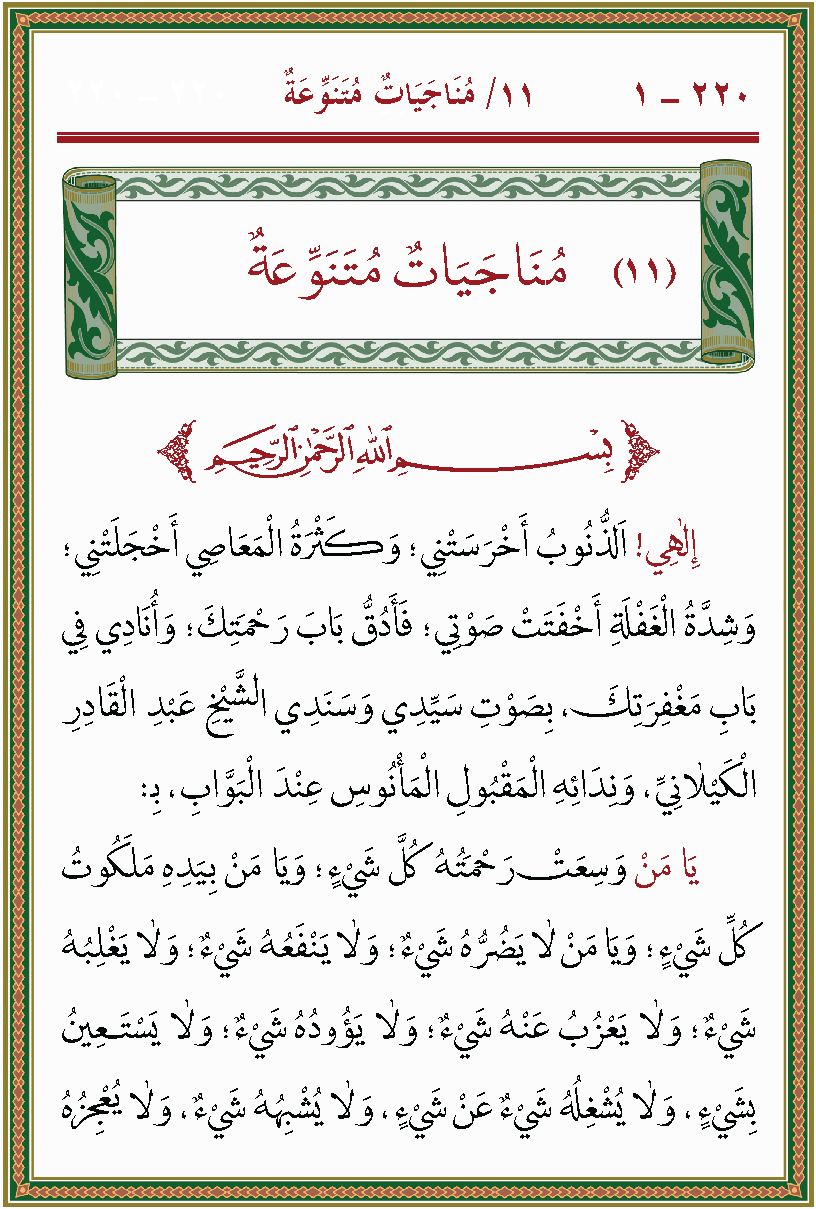 ٢٢٠ – ١ ١١/ مُنَاجَيَاتٌ مُتَنَوِّعَةٌ
(١١) مُنَاجَيَاتٌ مُتَنَوِّعَةٌ
بِسْمِ اللهِ الرَّحْمٰنِ الرَّحِيمِ
إِلٰهِي! اَلذُّنُوبُ أَخْرَسَتْنِي؛ وَكَثْرَةُ الْمَعَاصِي أَخْجَلَتْنِي؛
وَشِدَّةُ الْغَفْلَةِ أَخْفَتَتْ صَوْتِي؛ فَأَدُقُّ بَابَ رَحْمَتِكَ؛ وَأُنَادِي فِي
بَابِ مَغْفِرَتِكَ، بِصَوْتِ سَيِّدِي وَسَنَدِي الشَّيْخِ عَبْدِ الْقَادِرِ
الْكَيْلَانِيِّ، وَنِدَائِهِ الْمَقْبُولِ الْمَأْنُوسِ عِنْدَ الْبَوَّابِ، بِـ:
يَا مَنْ وَسِعَتْ رَحْمَتُهُ كُلَّ شَيْءٍ؛ وَيَا مَنْ بِيَدِهِ مَلَكُوتُ
كُلِّ شَيْءٍ؛ وَيَا مَنْ لَا يَضُرُّهُ شَيْءٌ؛ وَلَا يَنْفَعُهُ شَيْءٌ؛ وَلَا يَغْلِبُهُ
شَيْءٌ؛ وَلَا يَعْزُبُ عَنْهُ شَيْءٌ؛ وَلَا يَؤُودُهُ شَيْءٌ؛ وَلَا يَسْتَعِينُ
بِشَيْءٍ، وَلَا يُشْغِلُهُ شَيْءٌ عَنْ شَيْءٍ، وَلَا يُشْبِهُهُ شَيْءٌ، وَلَا يُعْجِزُهُ